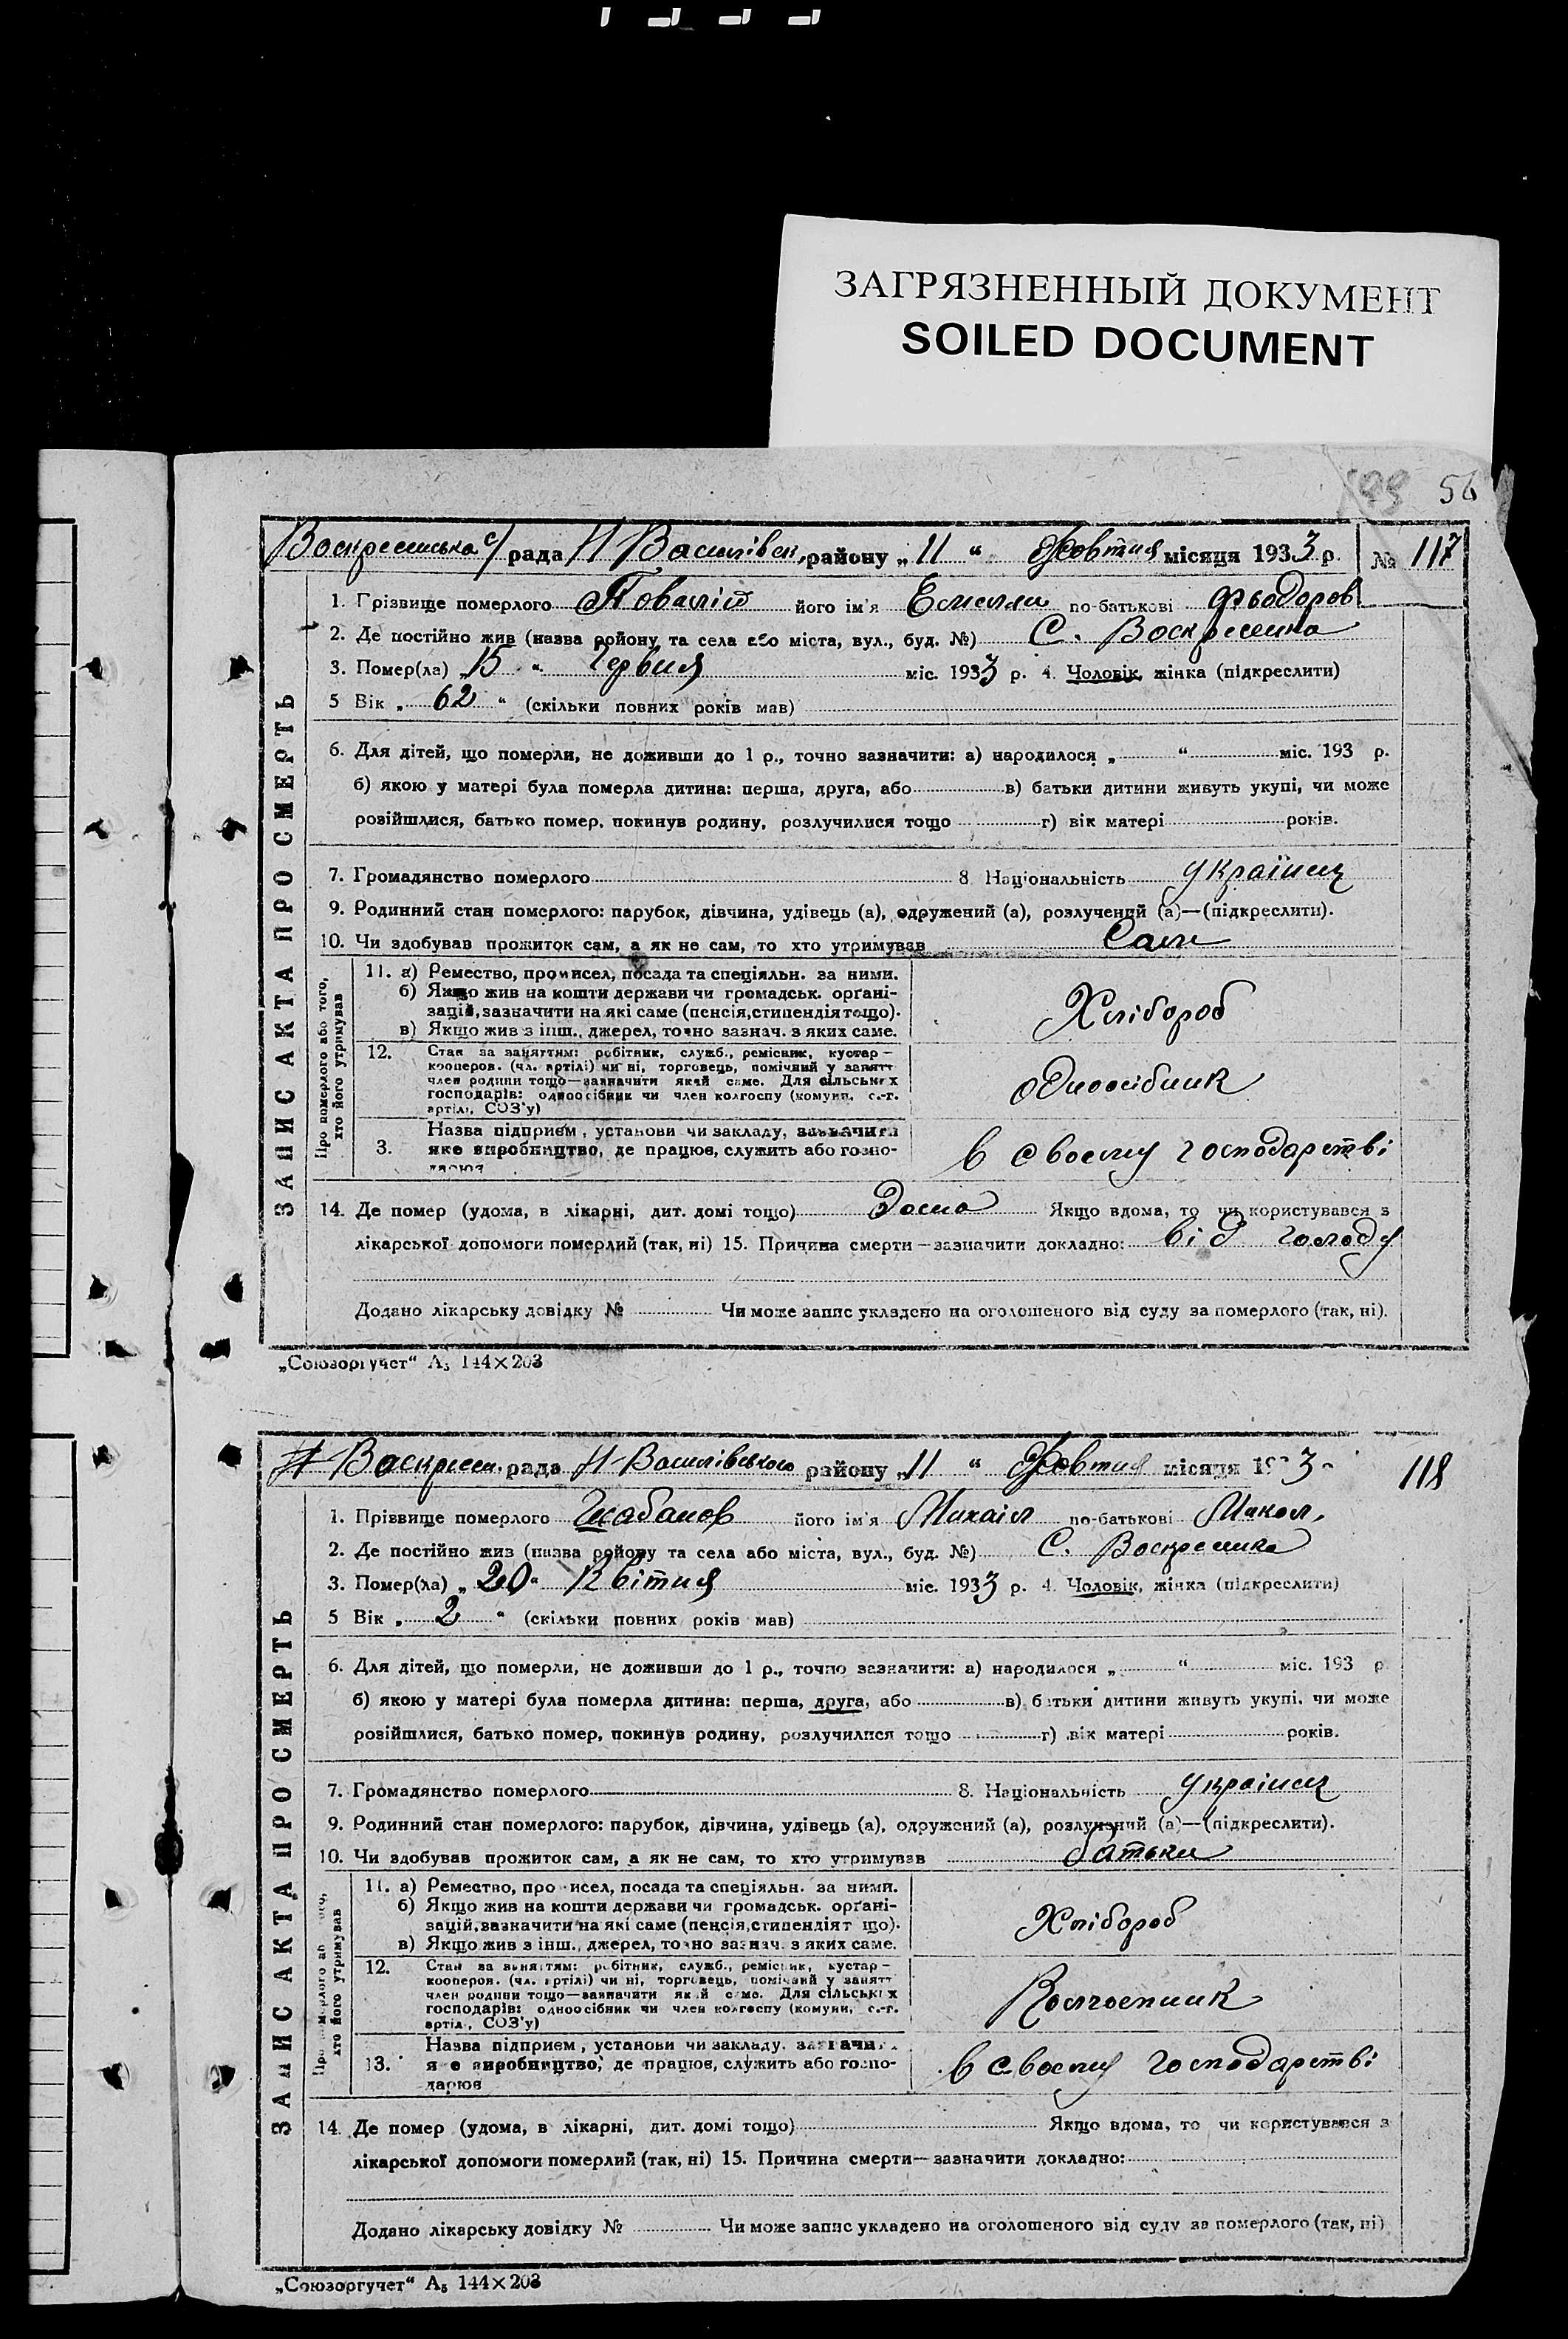 ЗАГРЯЗНЕННЫЙ ДОКУМЕНТ
SOILED DOCUMENT
56
Воскресенська с/рада Н Василівськ. району „11“ Жовтня місяця 1933 р. № 117
ЗАПИС АКТА ПРО СМЕРТЬ
1. Прізвище померлого Повалій його ім'я Емельян по-батькові Фьодоров
2. Де постійно жив (назва району та села або міста, вул., буд. №) С. Воскресенка
3. Помер(ла) „15“ Червня міс. 1933 р. 4. Чоловік, жінка (підкреслити)
5 Вік „62“ (скільки повних років мав)
6. Для дітей, що померли, не доживши до 1 р., точно зазначити: а) народилося „ “ міс. 193 р.
б) якою у матері була померла дитина: перша, друга, або в) батьки дитини живуть укупі, чи може
розійшлися, батько помер, покинув родину, розлучилися тощо г) вік матері років.
7. Громадянство померлого 8. Національність українец
9. Родинний стан померлого: парубок, дівчина, удівець (а), одружений (а), розлучений (а)—(підкреслити).
10. Чи здобував прожиток сам, а як не сам, то хто утримував Сам
Про померлого або того, хто його утримував
11. а) Ремество, промисел, посада та спеціяльн. за ними.
б) Якщо жив на кошти держави чи громадськ. орґані-
зацій, зазначити на які саме (пенсія, стипендія тощо).
в) Якщо жив з інш., джерел, точно зазнач. з яких саме.
Хлібороб
12. Стан за заняттям: робітник, служб., ремісник, кустар—
кооперов. (чл. артілі) чи ні, торговець, помічний у занятт
член родини тощо—зазначити який саме. Для сільських
господарів: одноосібник чи член колгоспу (комуни, с.-г.
артілі, СОЗ'у)
одноосібник
3. Назва підприєм, установи чи закладу, зазначити
яке виробництво, де працює, служить або госпо-
дарює
в своєму господарстві
14. Де помер (удома, в лікарні, дит. домі тощо) Дома Якщо вдома, то чи користувався з
лікарської допомоги померлий (так, ні) 15. Причина смерти—зазначити докладно: від голоду
Додано лікарську довідку № Чи може запис укладено на оголошеного від суду за померлого (так, ні).
„Союзоргучет“ А5 144×203
Воскресен. рада Н-Василівського району „11“ Жовтня місяця 193 3 118
ЗАПИС АКТА ПРО СМЕРТЬ
1. Прізвище померлого Шабанов його ім'я Михаіл по-батькові Микол.
2. Де постійно жив (назва району та села або міста, вул., буд. №) С. Воскресенка
3. Помер(ла) „20“ Квітня міс. 1933 р. 4. Чоловік, жінка (підкреслити)
5 Вік „2“ (скільки повних років мав)
6. Для дітей, що померли, не доживши до 1 р., точно зазначити: а) народилося „ “ міс. 193 р.
б) якою у матері була померла дитина: перша, друга, або в) батьки дитини живуть укупі, чи може
розійшлися, батько помер, покинув родину, розлучилися тощо г) вік матері років.
7. Громадянство померлого 8. Національність українец
9. Родинний стан померлого: парубок, дівчина, удівець (а), одружений (а), розлучений (а)—(підкреслити).
10. Чи здобував прожиток сам, а як не сам, то хто утримував батьки
хто його утримував
11. а) Ремество, промисел, посада та спеціяльн. за ними.
б) Якщо жив на кошти держави чи громадськ. орґані-
зацій, зазначити на які саме (пенсія, стипендія тощо).
в) Якщо жив з інш., джерел, точно зазнач. з яких саме.
Хлібороб
12. Стан за заняттям: робітник, служб., ремісник, кустар—
кооперов. (чл. артілі) чи ні, торговець, помічний у занятт
член родини тощо—зазначити який саме. Для сільських
господарів: одноосібник чи член колгоспу (комуни, с.-г.
артіл, СОЗ'у)
Колгоспник
13. Назва підприєм, установи чи закладу, зазначити
яке виробництво, де працює, служить або госпо-
дарює
в своєму господарстві
14. Де помер (удома, в лікарні, дит. домі тощо) Якщо вдома, то чи користувався з
лікарської допомоги померлий (так, ні) 15. Причина смерти—зазначити докладно:
Додано лікарську довідку № Чи може запис укладено на оголошеного від суду за померлого (так, ні)
„Союзоргучет“ А5 144×203